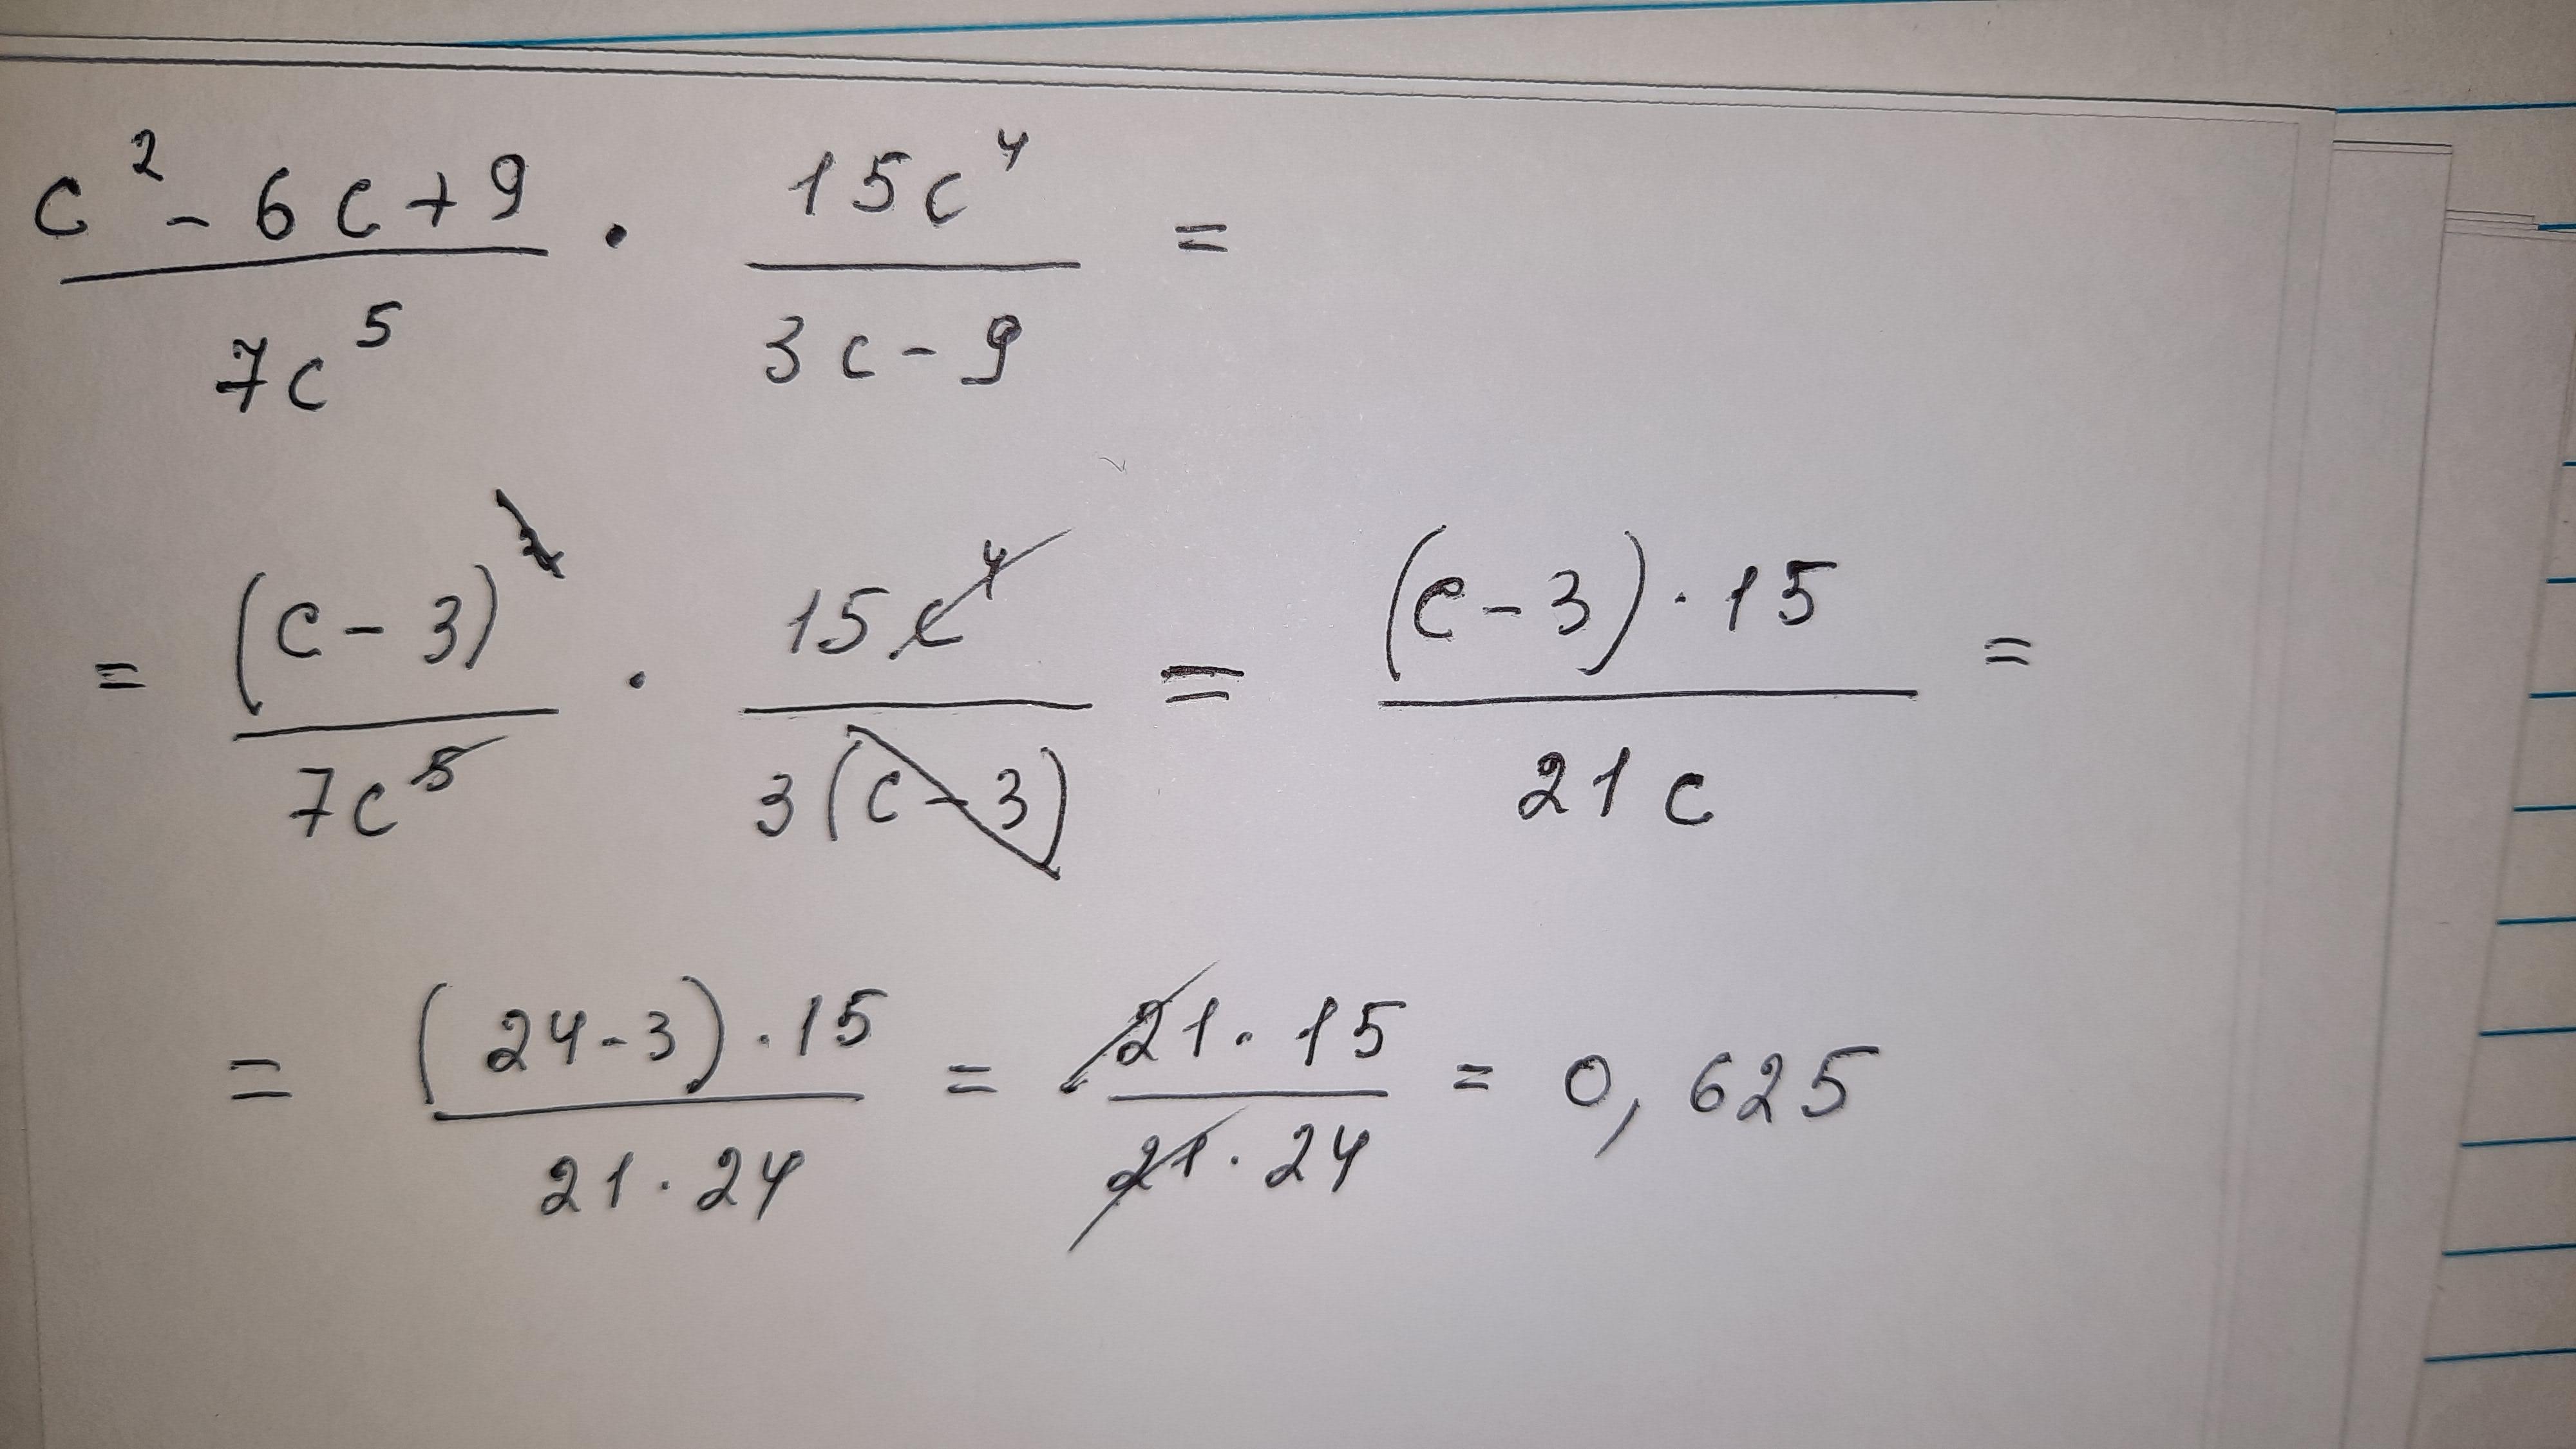 (c² - 6c + 9)/(7c⁵) · (15c⁴)/(3c - 9) =
= (c - 3)²/(7c⁵) · (15c⁴)/(3(c - 3)) = ((c - 3) · 15)/(21c) =
= ((24 - 3) · 15)/(21 · 24) = (21 · 15)/(21 · 24) = 0,625